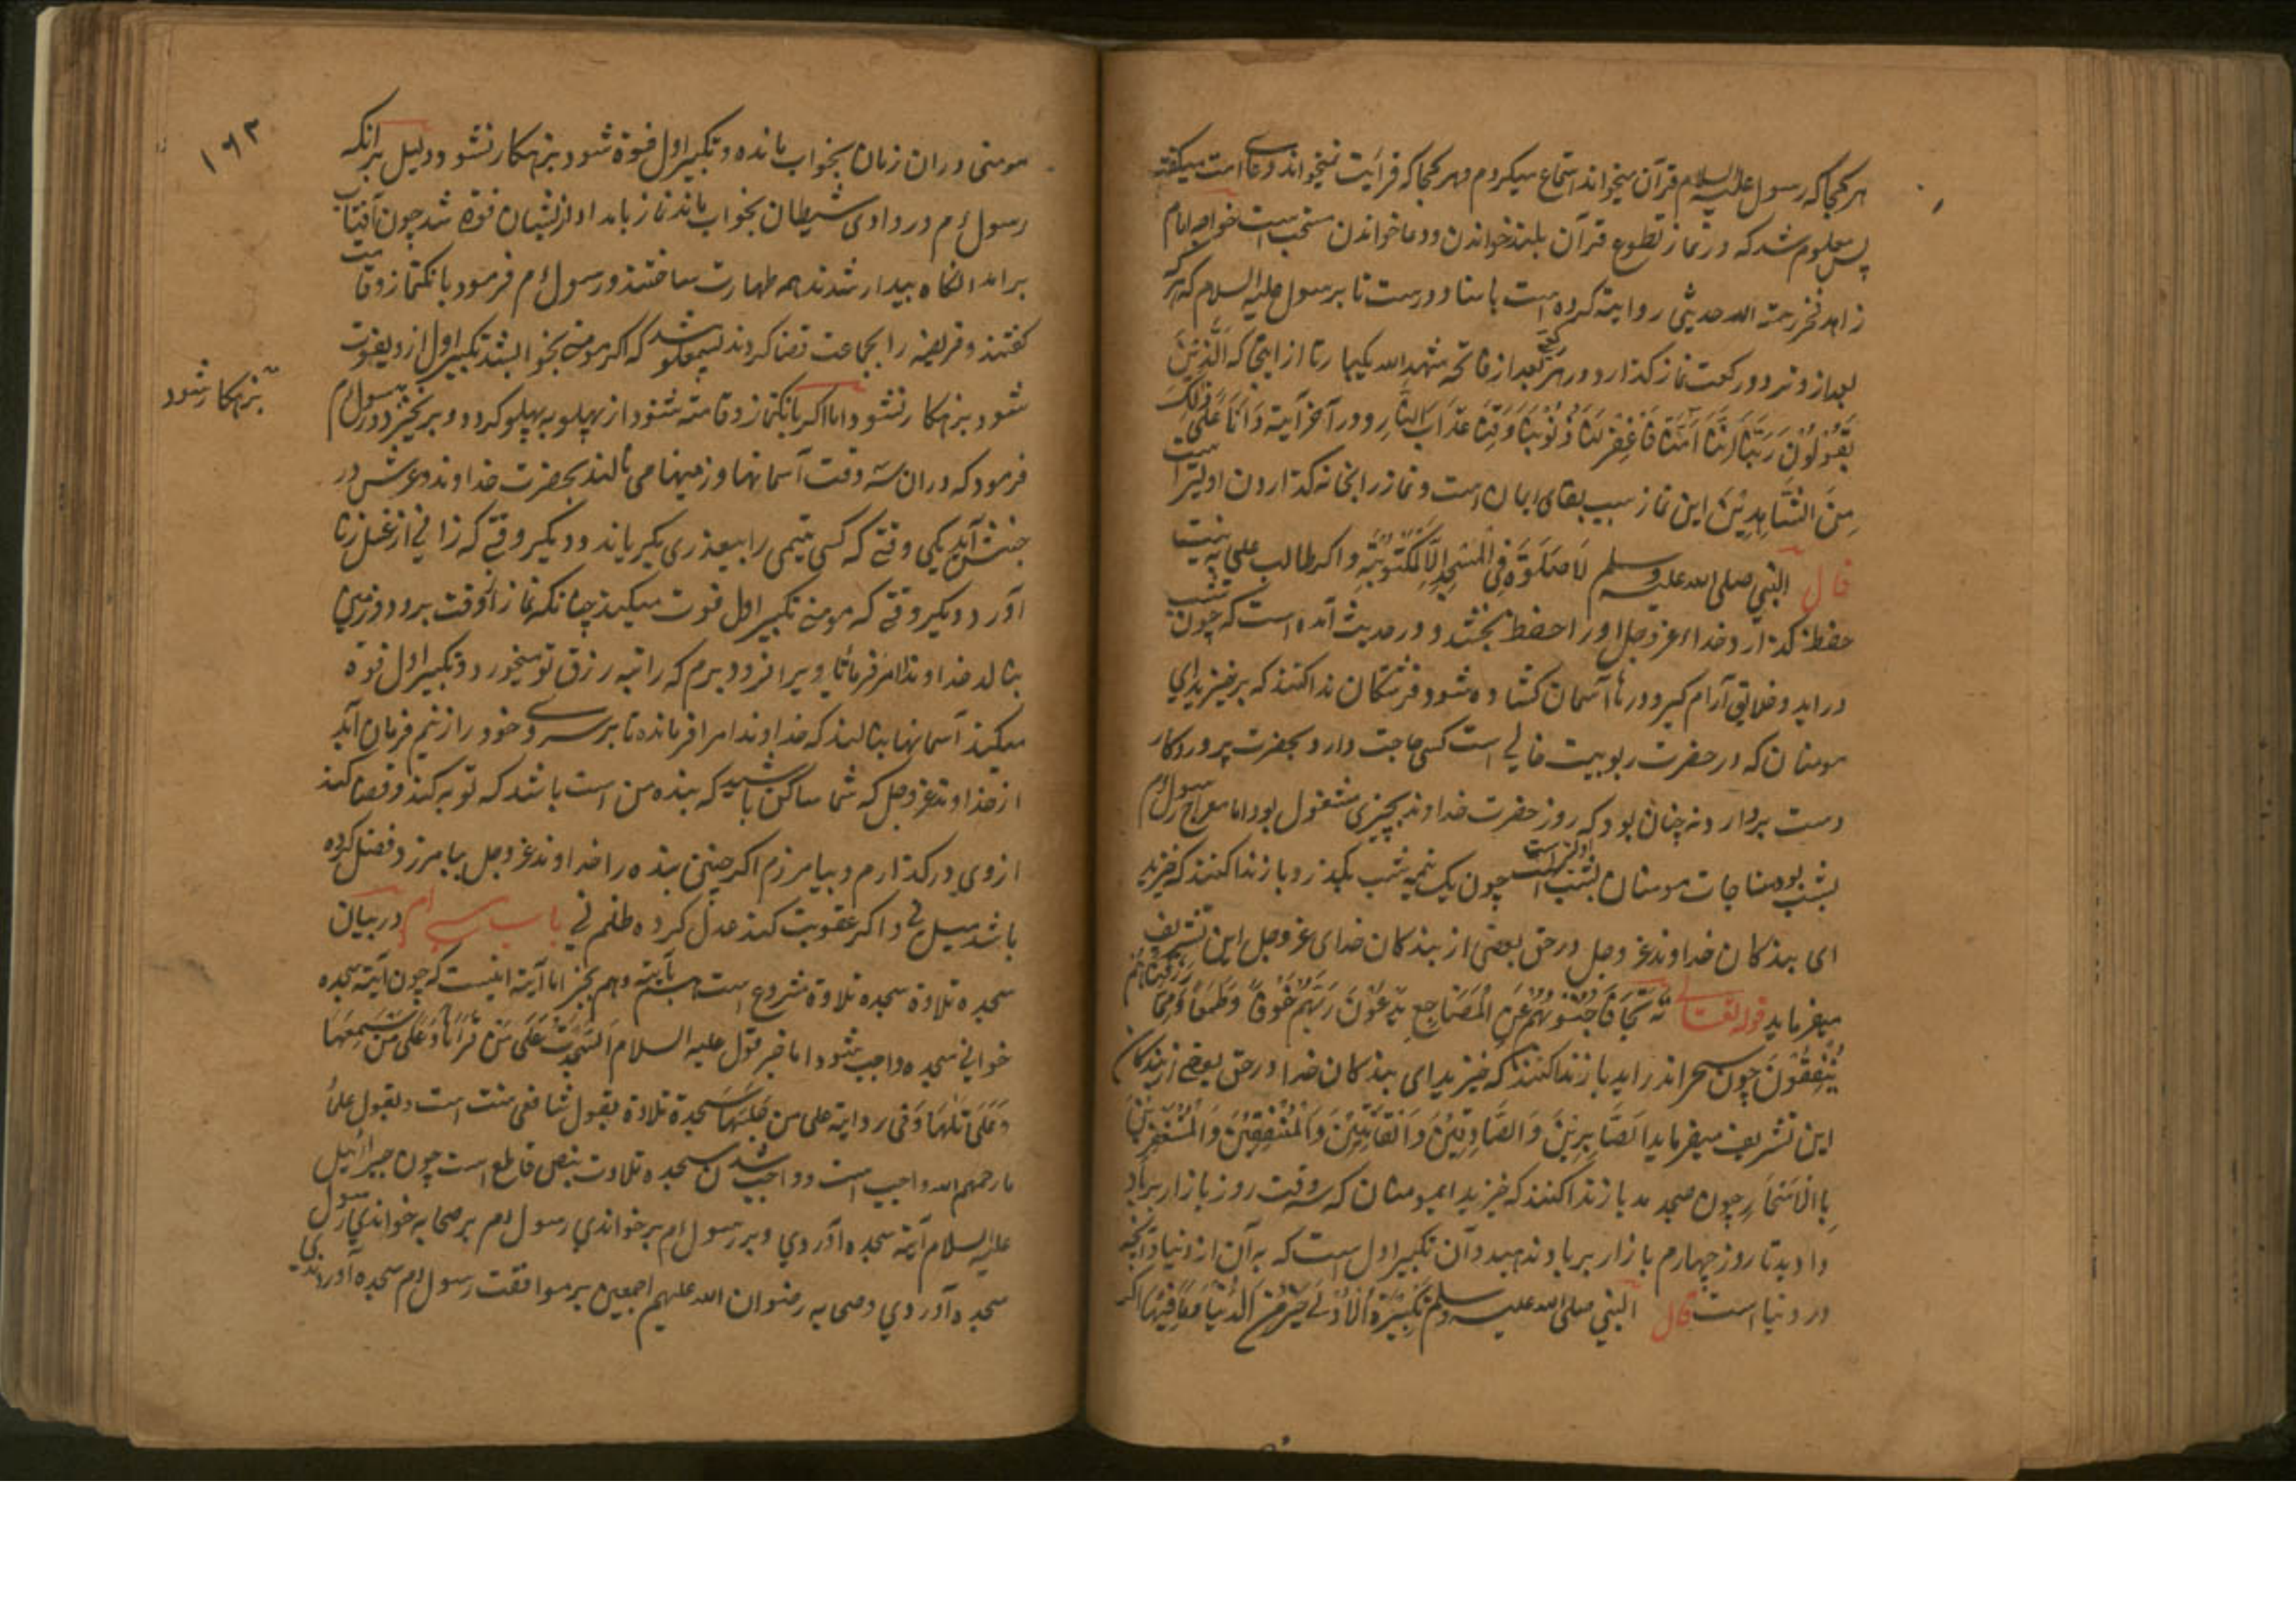 هر کجا که رسول علیه السلام قرآن میخواند استماع میکردم و هر کجا که قرایت نمیخواند دعای امت میکفت
پس معلوم شد که در نماز تطوع قرآن بلند خواندن و دعا خواندن مستحب است خواجه امام
زاهد فخر رحمة الله حدیثی روایة کرده است باسناد درست تا برسول علیه السلام که هر که
بعد از وتر دو رکعت نماز کذارد و در هر رکعتی بعد از فاتحه شهد الله یکبار تا از اینجا که الَّذِیْنَ
یَقُوْلُوْنَ رَبَّنَا اِنَّنَا اٰمَنَّا فَاغْفِرْ لَنَا ذُنُوْبَنَا وَقِنَا عَذَابَ النَّارِ و در آخر آیة وَاَنَا عَلٰی ذٰلِکَ
مِنَ الشَّاهِدِیْنَ این نماز سبب بقای ایمان است و نماز را بخانه کذاردن اولیتر است
قال النبی صلی الله علیه وسلم لَا صَلٰوةَ فِی الْمَسْجِدِ اِلَّا الْمَکْتُوْبَةِ و اکر طالب علمی به نیت
حفظ کذارد خدای عزوجل او را حفظ بخشد و در حدیث آمده است که چون شب
در اید و خلایق آرام کیرد درهاء آسمان کشاده شود فرشتکان ندا کنند که برخیزید ای
مومنان که در حضرت ربوبیت خالی است کسی حاجت دارد بحضرت پروردکار
دست بردارد نه چنان بود که روز حضرت خداوند بچیزی مشغول بود اما معراج رسول م
بشب بوده مناجات مومنان بشب اولیتر است چون یک نیمه شب بکذرد باز ندا کنند که خیزید
ای بندکان خداوند عزوجل در حق بعضی از بندکان خدای عزوجل این تشریف
میفرماید قوله تعالی تَتَجَافٰی جُنُوْبُهُمْ عَنِ الْمَضَاجِعِ یَدْعُوْنَ رَبَّهُمْ خَوْفًا وَّطَمَعًا وَّمِمَّا رَزَقْنَاهُمْ
یُنْفِقُوْنَ چون سحر اندر اید باز ندا کنند که خیزید ای بندکان خدا در حق بعضی از بندکان
این تشریف میفرماید اَلصَّابِرِیْنَ وَالصَّادِقِیْنَ وَالْقَانِتِیْنَ وَالْمُنْفِقِیْنَ وَالْمُسْتَغْفِرِیْنَ
بِالْاَسْحَارِ چون صبح باز ندا کنند که خیزید ای مومنان که سه وقت روز بازار برباد
دادید تا روز چهارم بازار برباد ندهید و آن تکبیر اول است که به از دنیا و آنچه
در دنیا است قال النبی صلی الله علیه وسلم تَکْبِیْرَةُ الْاُوْلٰی خَیْرٌ مِّنَ الدُّنْیَا وَمَا فِیْهَا اکر
۱۶۲
مومنی دران زمان بخواب مانده و تکبیر اول فوة شود بزهکار نشود و دلیل برانکه
رسول م در وادی شیطان بخواب ماند نماز بامداد از یشان فوة شد چون آفتاب
برامد انکاه بیدار شدند همه طهارت ساختند و رسول م فرمود بانک نماز و قامت
کفتند و فریضه را بجماعت قضا کردند پس معلوم شد که اکر مومنی بخواب باشد تکبیر اول از و یفوت
شود بزهکار نشود و اما اکر بانک نماز و قامة شنود از پهلو به پهلو کردد و برنخیزد رسول م
بزهکار شود
فرمود که دران سه وقت آسمانها و زمینها می نالند بحضرت خداوند و عرش در
جنبش آید یکی وقتی که کسی یتیمی را ببعذری بکریاند و دیکر وقتی که زانی از غسل زنا
آورد و دیکر وقتی که مومنی تکبیر اول فوت میکند چنانکه نماز از وقت برود زمین
بنالد خداوندا امر فرمای تا ویرا فرود برم که راتبه رزق تو میخورد و تکبیر اول فوة
میکند آسمانها بنالند که خداوندا امر فرما تا بر سر وی خود را زنیم فرمان آید
از خداوند عزوجل که شما ساکن باشید که بنده من است باشد که توبه کند و قضا کند
از وی درکذارم و بیامرزم اکر چنین بنده را خداوند عزوجل بیامرزد فضل کرده
باشد میل نی و اکر عقوبت کند عدل کرده ظلم نی باب سی ام در بیان
سجده تلاوة سجده تلاوة مشروع است هم بآیة و هم بخبر اما آیة اینست که چون آیة سجده
خوانی سجده واجب شود اما خبر قول علیه السلام اَلسَّجْدَةُ عَلٰی مَنْ قَرَأَهَا وَعَلٰی مَنْ سَمِعَهَا
وَعَلٰی تَلَهَا وفی روایة علی من سجدة تلاوة بقول شافعی سنت است و بقول علماء
ما رحمهم الله واجب است و واجب شدن سجده تلاوت بنص قاطع است چون جبرائیل
علیه السلام آیة سجده آوردی و بر رسول م برخواندی رسول م بر صحابه خواندی رسول
سجده آوردی و صحابه رضوان الله علیهم اجمعین بر موافقت رسول م سجده آوردندی